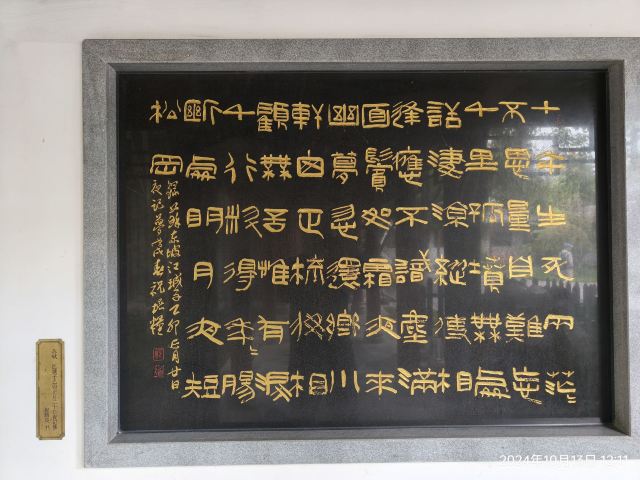 十年生死兩茫〻
不思量自難忘
千里孤墳無處
話淒涼縱使相
逢應不識塵滿
面鬢如霜夜來
幽夢忽還鄉小
軒窗正梳妝相
顧無言惟有淚
千行料得年〻腸
斷處明月夜短
松岡
蘇東坡江城子乙卯正月廿日
夜記夢
2024年10月13日 12:11